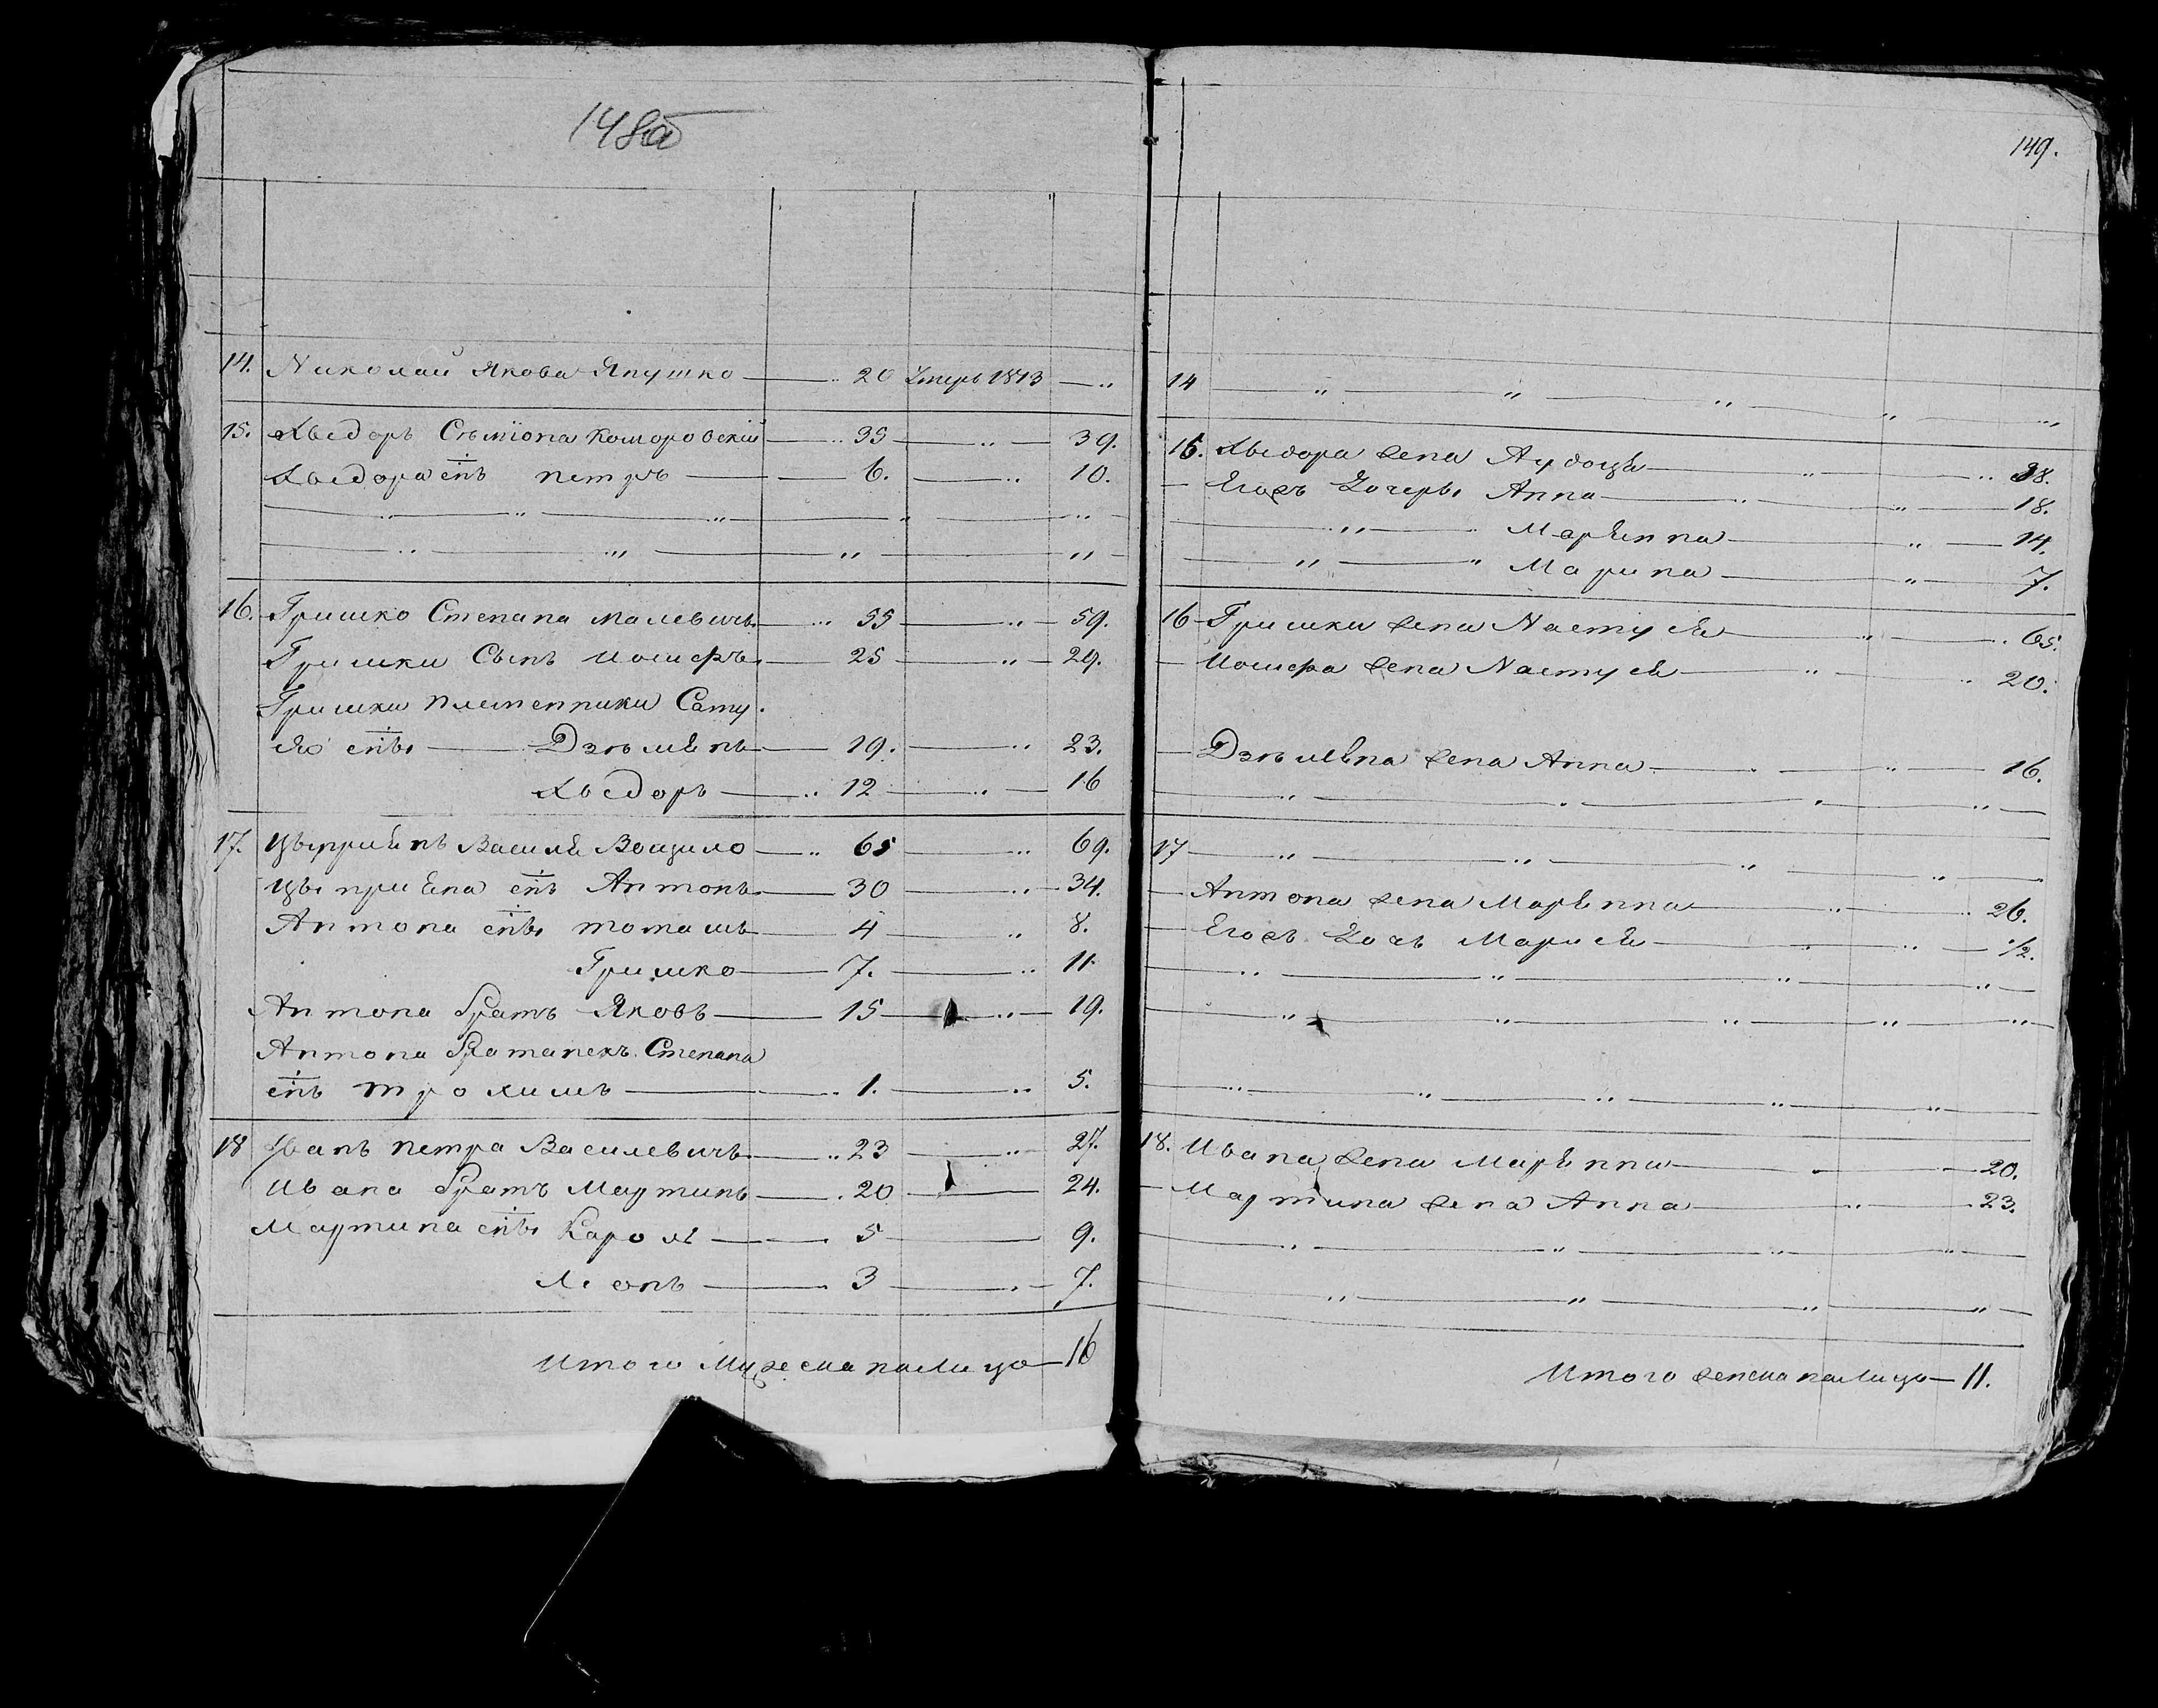 148об
14. Николай Якова Янушко 20 Умеръ 1813
15. Хведоръ Сѣмiона Коморовскiй 35 39.
Хведора снъ петръ 6. 10.
16. Гришко Степана Малевичъ 55 59.
Гришки Сынъ Иосифъ 25 29.
Гришки племенники Сату.
я снъ Дземьянъ 19. 23.
Хведоръ 12 16
17. Цыприянъ Василя Вощило 65 69.
Цыприяна снъ Антонъ 30 34.
Антона снъ томашъ 4 8.
Гришко 7. 11.
Антона братъ Яковъ 15 19.
Антона братанекъ Степана
снъ трохимъ 1. 5.
18 Иванъ петра Василевичъ 23 27.
Ивана братъ Мартинъ 20 24.
Мартина снъ Кароль 5 9.
Леонъ 3 7.
Итого Мужеска пола лицо 16
149.
14
15. Хведора жена Аудоця 38.
Егожъ Дочеръ Анна 18.
Марьянна 14.
Марина 7.
16 Гришки жена Настуся 65.
Иосифа жена Настуся 20.
Дземьяна жена Анна 16.
17
Антона жена Марьянна 26.
Егожъ Дочъ Марися 1/2.
18. Ивана жена Марьянна 20.
Мартина жена Анна 23.
Итого женска пола лицо 11.